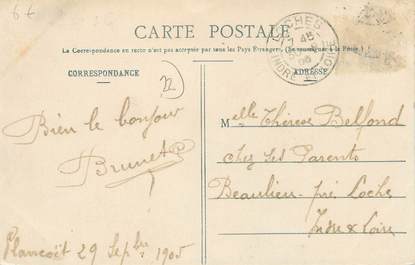 6 €
CARTE POSTALE
La Correspondance au recto n'est pas acceptée par tous les Pays Étrangers. (Se renseigner à la Poste.)
CORRESPONDANCE
ADRESSE
LOCHES
INDRE ET LOIRE
22
Melle Thérèse Belfond
Chez ses Parents
Beaulieu-près Loche
Indre & Loire
Bien le bonjour
Brunet
Plancoët 29 Sepbre 1905